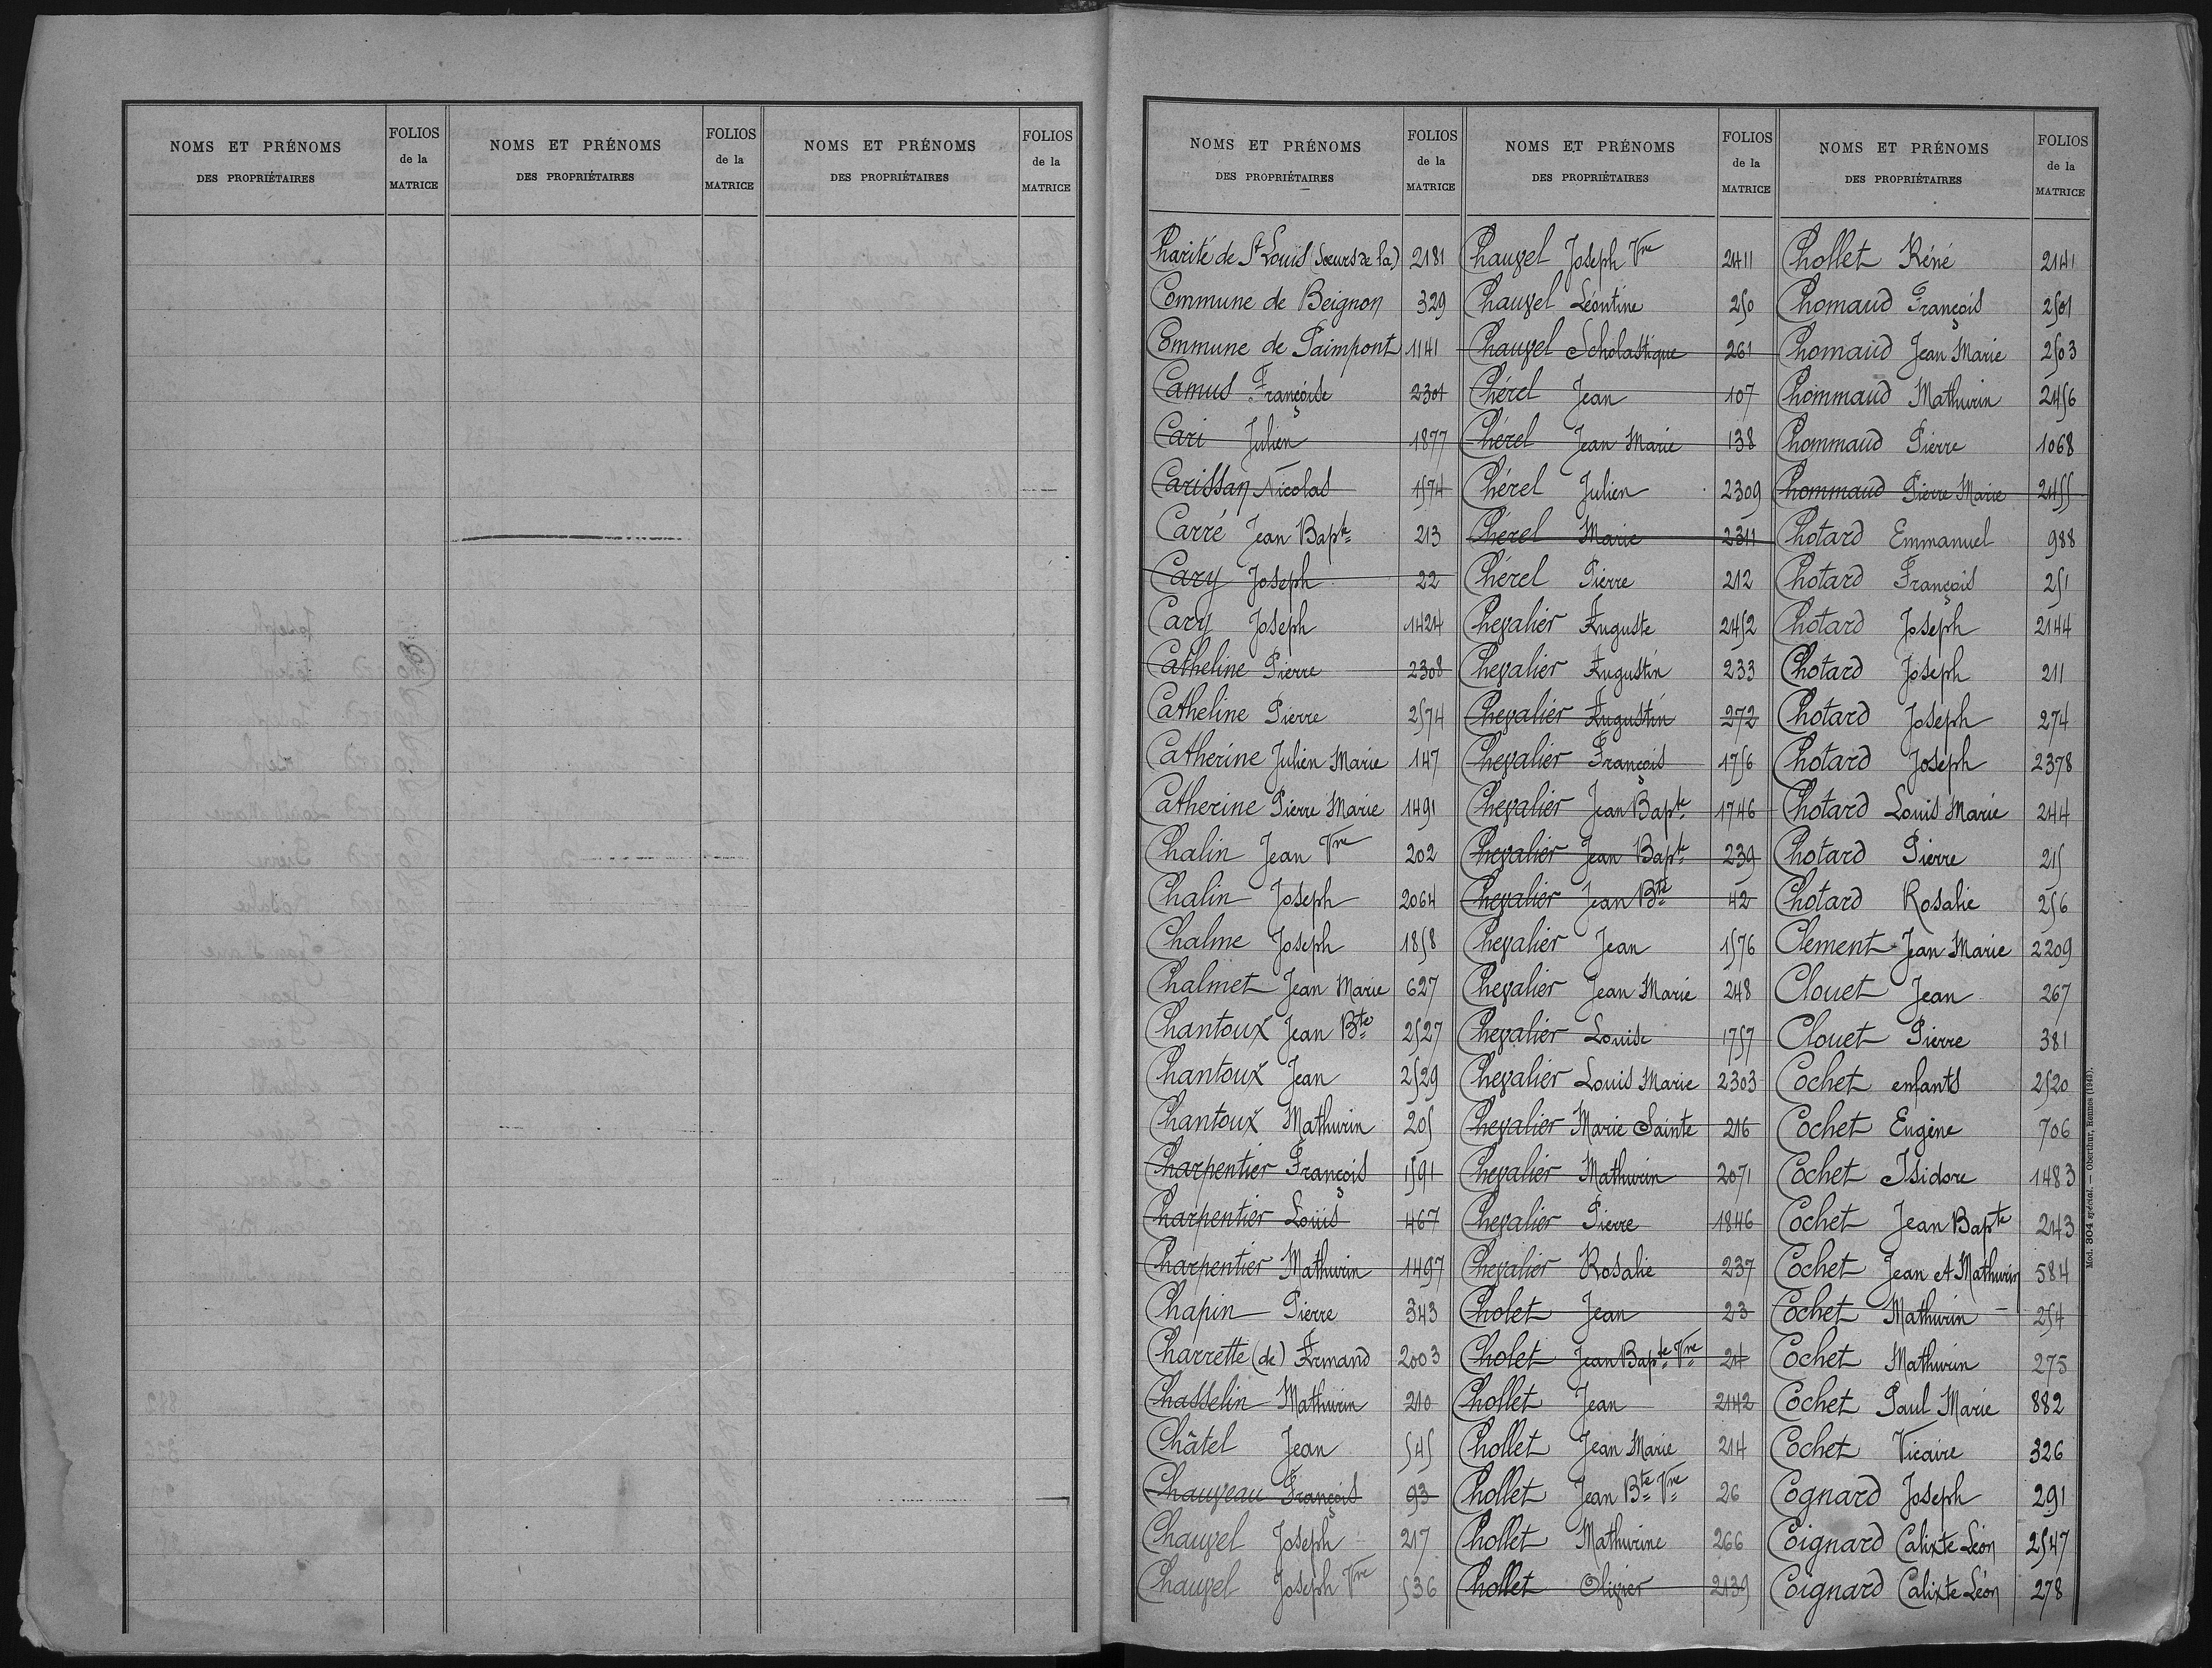 NOMS ET PRÉNOMS DES PROPRIÉTAIRES FOLIOS de la MATRICE NOMS ET PRÉNOMS DES PROPRIÉTAIRES FOLIOS de la MATRICE NOMS ET PRÉNOMS DES PROPRIÉTAIRES FOLIOS de la MATRICE
NOMS ET PRÉNOMS DES PROPRIÉTAIRES FOLIOS de la MATRICE NOMS ET PRÉNOMS DES PROPRIÉTAIRES FOLIOS de la MATRICE NOMS ET PRÉNOMS DES PROPRIÉTAIRES FOLIOS de la MATRICE
Charité de St Louis (Sœurs de la) 2181
Commune de Beignon 329
Commune de Paimpont 1141
Camus Françoise 2301
Cari Julien 1877
Carissan Nicolas 1574
Carré Jean Bapte 213
Cary Joseph 22
Cary Joseph 1424
Catheline Pierre 2308
Catheline Pierre 2574
Catherine Julien Marie 147
Catherine Pierre Marie 1491
Chalin Jean Vve 202
Chalin Joseph 2064
Chalme Joseph 1858
Chalmet Jean Marie 627
Chantoux Jean Bte 2527
Chantoux Jean 2529
Chantoux Mathurin 205
Charpentier François 1591
Charpentier Louis 467
Charpentier Mathurin 1497
Chapin Pierre 343
Charrette (de) Armand 2003
Chasselin Mathurin 210
Châtel Jean 545
Chauveau François 93
Chauvel Joseph 217
Chauvel Joseph Vve 536
Chauvel Joseph Vve 2411
Chauvel Léontine 250
Chauvel Scholastique 261
Chérel Jean 107
Chérel Jean Marie 138
Chérel Julien 2309
Chérel Marie 2311
Chérel Pierre 212
Chevalier Auguste 2452
Chevalier Augustin 233
Chevalier Augustin 272
Chevalier François 1756
Chevalier Jean Bapte 1746
Chevalier Jean Bapte 239
Chevalier Jean Bte 42
Chevalier Jean 1576
Chevalier Jean Marie 248
Chevalier Louise 1757
Chevalier Louis Marie 2303
Chevalier Marie Sainte 216
Chevalier Mathurin 2071
Chevalier Pierre 1846
Chevalier Rosalie 237
Cholet Jean 23
Cholet Jean Bapte Vve 24
Chollet Jean 2142
Chollet Jean Marie 214
Chollet Jean Bte Vve 26
Chollet Mathurine 266
Chollet Olivier 2139
Chollet Réné 2141
Chomaud François 2501
Chomaud Jean Marie 2503
Chommaud Mathurin 2456
Chommaud Pierre 1068
Chommaud Pierre Marie 2455
Chotard Emmanuel 988
Chotard François 251
Chotard Joseph 2144
Chotard Joseph 211
Chotard Joseph 274
Chotard Joseph 2378
Chotard Louis Marie 244
Chotard Pierre 215
Chotard Rosalie 256
Clement Jean Marie 2209
Clouet Jean 267
Clouet Pierre 381
Cochet enfants 2520
Cochet Eugène 706
Cochet Isidore 1483
Cochet Jean Bapte 243
Cochet Jean et Mathurin 584
Cochet Mathurin 254
Cochet Mathurin 275
Cochet Paul Marie 882
Cochet Vicaire 326
Cognard Joseph 291
Coignard Calixte Léon 2547
Coignard Calixte Léon 278
Mod. 304 spécial. — Oberthur, Rennes (1943).